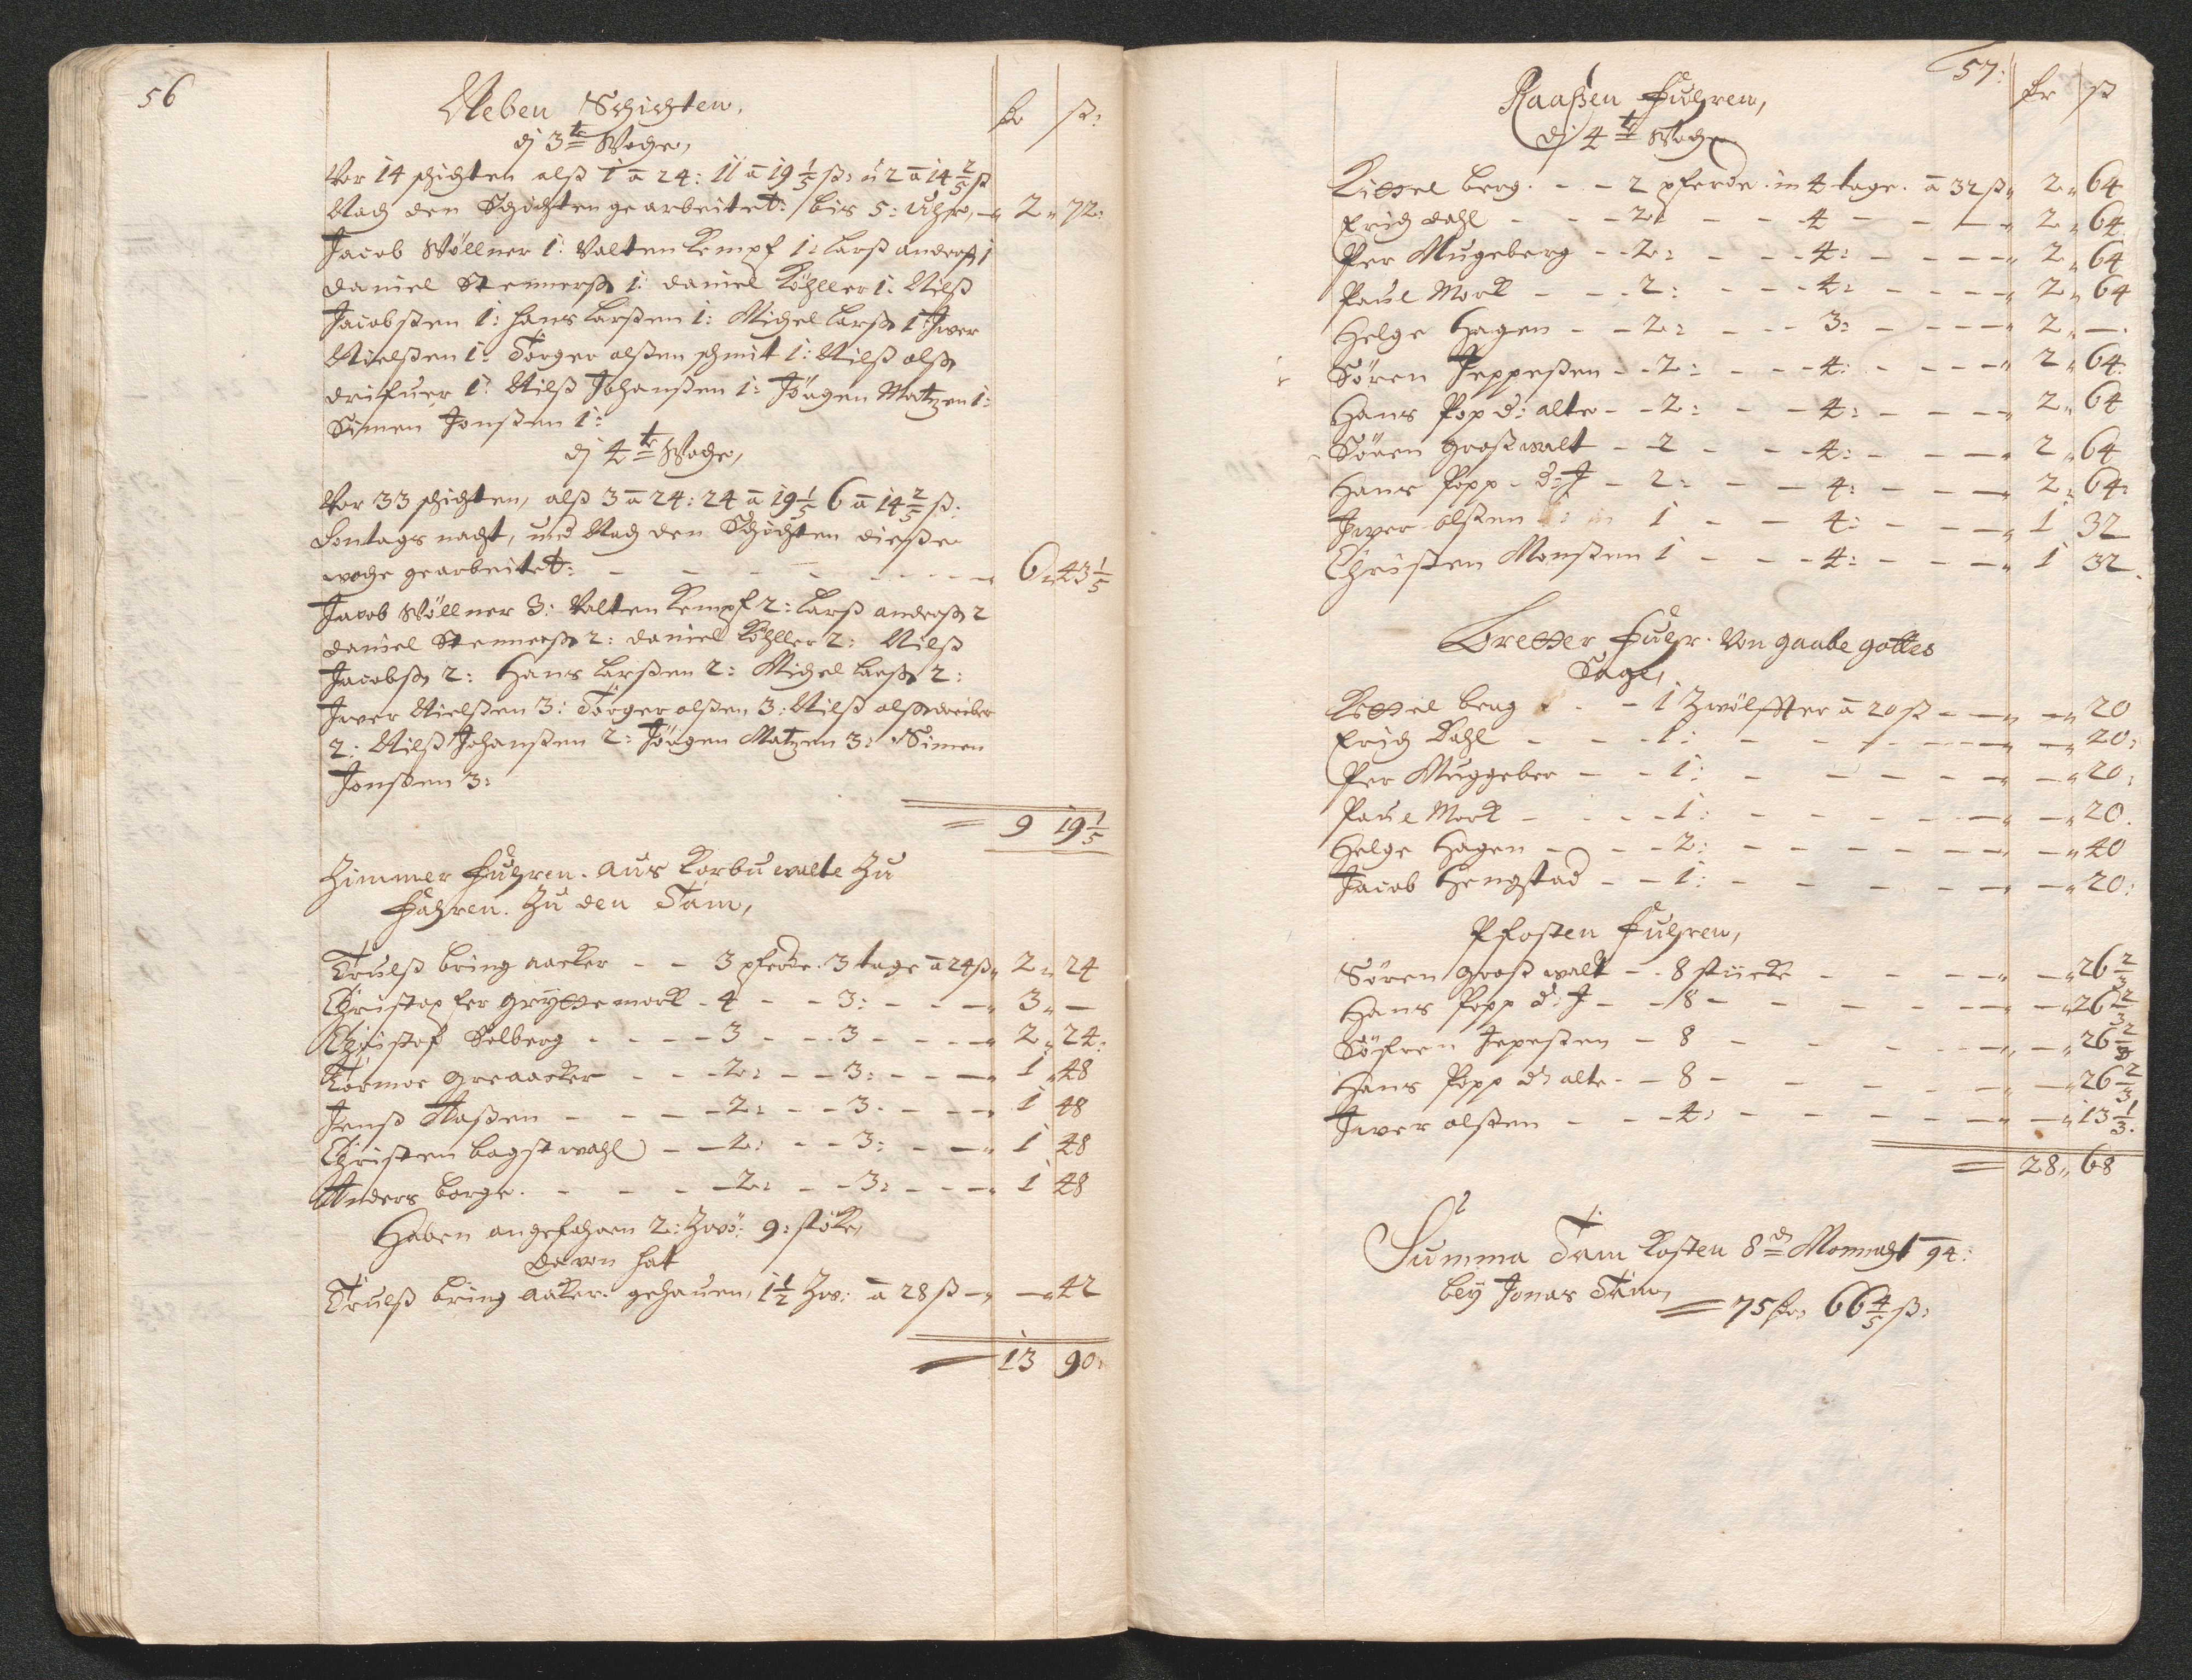 56
Neben Schichten,
dj 3te Woche,
Rr ß:
Vor 14 schichten alß 1 a 24: 11 a 19 1/5 ß: ü 2 a 14 2/5 ß
Nach den Schichten gearbeitet: bis 5: Uhre, — 2 „ 72:
Jacob Wöllner 1: Valten Kempf 1: Larß anderß 1
Daniel Stennerß 1: Daniel Köhller 1: Nilß
Jacobsen 1: Hans Larßen 1: Michel Larß 1: Iver
Nielßen 1: Törger olßen schmit 1: Nilß olß
drifuer 1: Nilß Johanßen 1: Jörgen Matzen 1:
Simen Jonßen 1:
dj 4te Woche,
Vor 33 schichten, alß 3 a 24: 24 a 19 1/5 6 a 14 2/5 ß:
Sontags nacht, und Nach den Schichten dieße
woche gearbeitet: — — — 6 „ 43 1/5
Jacob Wöllner 3: Valten Kempf 2: Larß anderß 2
Daniel Stennerß 2: Daniel Köhller 2: Nilß
Jacobß 2: Hans Larßen 2: Michel Larß 2:
Iver Nielßen 3: Törger olßen 3: Nilß olß dreiber
2: Nilß Johanßen 2: Jörgen Matzen 3: Simen
Jonßen 3:
= 9 19 1/5
Zimmer Fuhren. aus Korbu walte Zu
Fahren. Zu den Tam,
Trulß bring aacker - - 3 pferde. 3 tage a 24 ß „ 2 „ 24
Christopfer Gryttemork - 4 - - 3: - - - „ 3 „ —
Christof Selberg - - - - 3 - - - 3 - - - - „ 2 „ 24:
Tormoe Greaacker - - - 2: - - 3: - - - „ 1 „ 48
Jenß Aaßen - - - - 2: - - 3. - - - „ 1 48
Christen bagstwahl - - 2: - - 3: - - - „ 1 48
Anders borge. - - - - 2: - - 3: - - - „ 1 48
Haben angefahren 2: Zwö: 9: stöke,
davon hat
Trulß bring aaker. gehauen, 1 1/2 Zw: a 28 ß - „ — „ 42
= 13 90:
57:
Raaßen Fuhren,
Rr ß
dj 4te Woche
Kittel berg. - - 2 pferde. in 4 tage. a 32 ß „ 2 „ 64
Erich dahl - - - 2: - - - 4 - - - - „ 2 „ 64
Per Mugeberg - - 2: - - - 4: - - - - „ 2 „ 64
Paul Mork - - - 2: - - - 4: - - - - „ 2 „ 64
Helge Hagen - - 2: - - - 3: - - - - „ 2 „ —
Sören Jeppeßen - - 2: - - - 4: - - - - „ 2 „ 64:
Hans Pop d: alte - - 2: - - 4: - - - - „ 2 „ 64
Sören großwalt - - 2 - - - 4: - - - - „ 2 „ 64
Hans Popp - d: J - 2: - - - 4: - - - - „ 2 „ 64:
Iver olßen 1 - - 4: - - - - „ 1 32
Christen Monßen 1 - - - 4: - - - - „ 1 32.
Bretter Fuhr. Von gaabe gottes
Sage,
Kettel berg - 1 Zwölffter a 20 ß - - „ — „ 20
Erich Dahl - - - 1: - - - - - — „ 20:
Per Muggeber - - 1: - - - - - — „ 20:
Paul Mork - - - - 1: - - - - - — „ 20.
Helge Hagen - - - 2: - - - - - — „ 40
Jacob Hengstad - - 1: - - - - - — „ 20:
Pfosten Fuhren,
Sören groß walt - - 8 stücke - - - - „ — „ 26 2/3
Hans Popp d: J - - 8 - - - - - „ — „ 26 2/3
Söfren Jepeßen - 8 - - - - - „ — „ 26 2/3
Hans Popp d: alte - - 8 - - - - - „ — „ 26 2/3
Iver olßen - - - 4: - - - - - „ — „ 13 1/3.
= 28 „ 68
Summa Tam Kosten 8d Monnaht 94:
bey Jonas Tam,
= 75 Rr 66 4/5 ß: